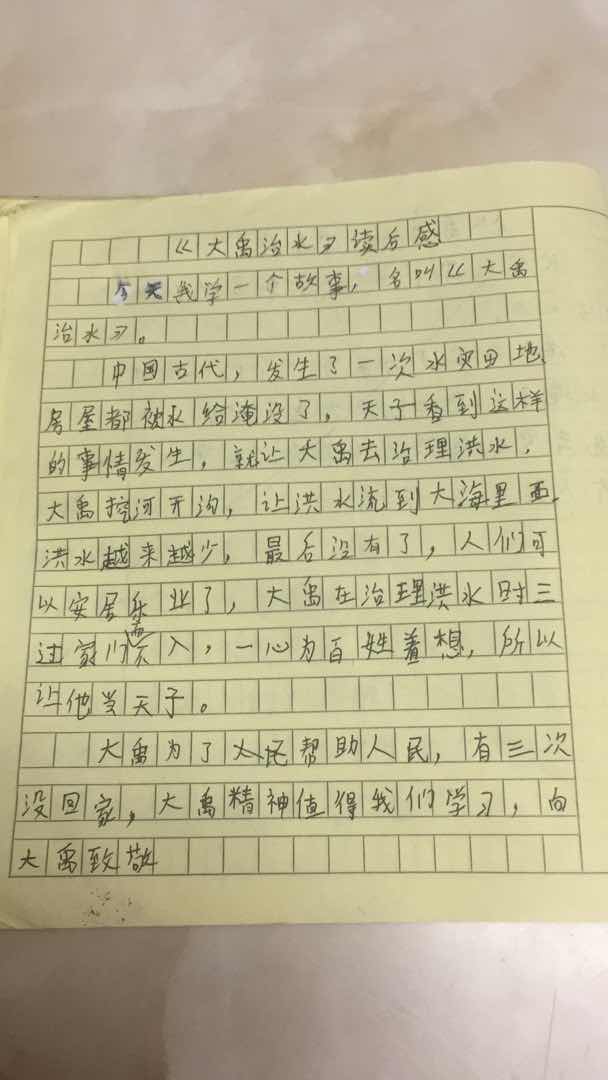 《大禹治水》读后感
今天我学一个故事，名叫《大禹
治水》。
中国古代，发生了一次水灾田地
房屋都被水给淹没了，天子看到这样
的事情发生，就让大禹去治理洪水，
大禹挖河开沟，让洪水流到大海里面
洪水越来越少，最后没有了，人们可
以安居乐业了，大禹在治理洪水时三
过家门而不入，一心为百姓着想，所以
让他当天子。
大禹为了帮助人民，有三次
没回家，大禹精神值得我们学习，向
大禹致敬